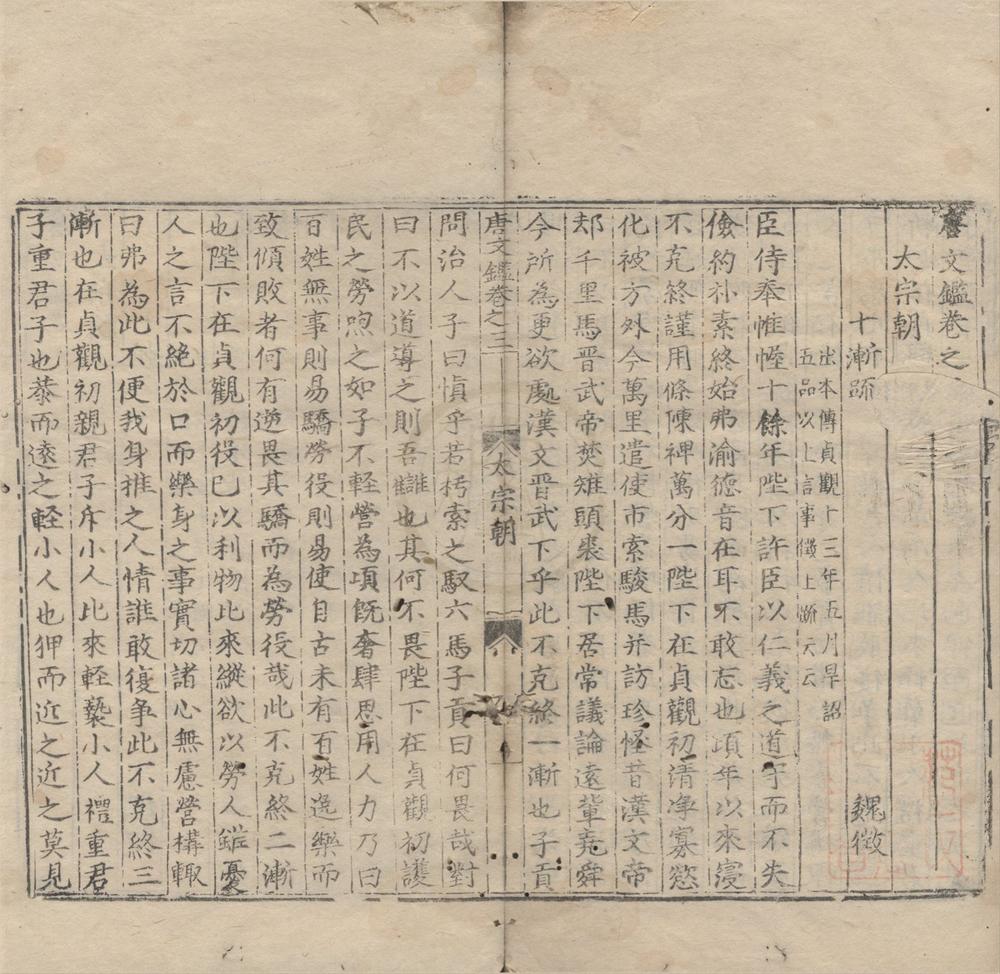 唐文鑑卷之
太宗朝
十漸䟽 出本傳貞觀十三年五月旱詔 魏徵
五品以上言事徵上䟽云云
臣侍奉帷幄十餘年陛下許臣以仁義之道守而不失
儉約朴素終始弗渝德音在耳不敢忘也頃年以來寖
不克終謹用條陳裨萬分一陛下在貞觀初清淨寡慾
化被方外今萬里遣使市索駿馬并訪珍怪昔漢文帝
却千里馬晋武帝焚雉頭裘陛下居常議論遠輩堯舜
今所為更欲處漢文晋武下乎此不克終一漸也子貢
唐文鑑卷之三 太宗朝
問治人子曰愼乎若朽索之馭六馬子貢曰何畏哉對
曰不以道導之則吾讎也其何不畏陛下在貞觀初護
民之勞喣之如子不輕營為頃旣奢肆思用人力乃曰
百姓無事則易驕勞役則易使自古未有百姓逸樂而
致傾敗者何有逆畏其驕而為勞役哉此不克終二漸
也陛下在貞觀初役已以利物比來縱欲以勞人雖憂
人之言不絶於口而樂身之事實切諸心無慮營構輙
曰弗為此不便我身推之人情誰敢復争此不克終三
漸也在貞觀初親君子斥小人比來輕褻小人禮重君
子重君子也恭而遠之輕小人也狎而近之近之莫見